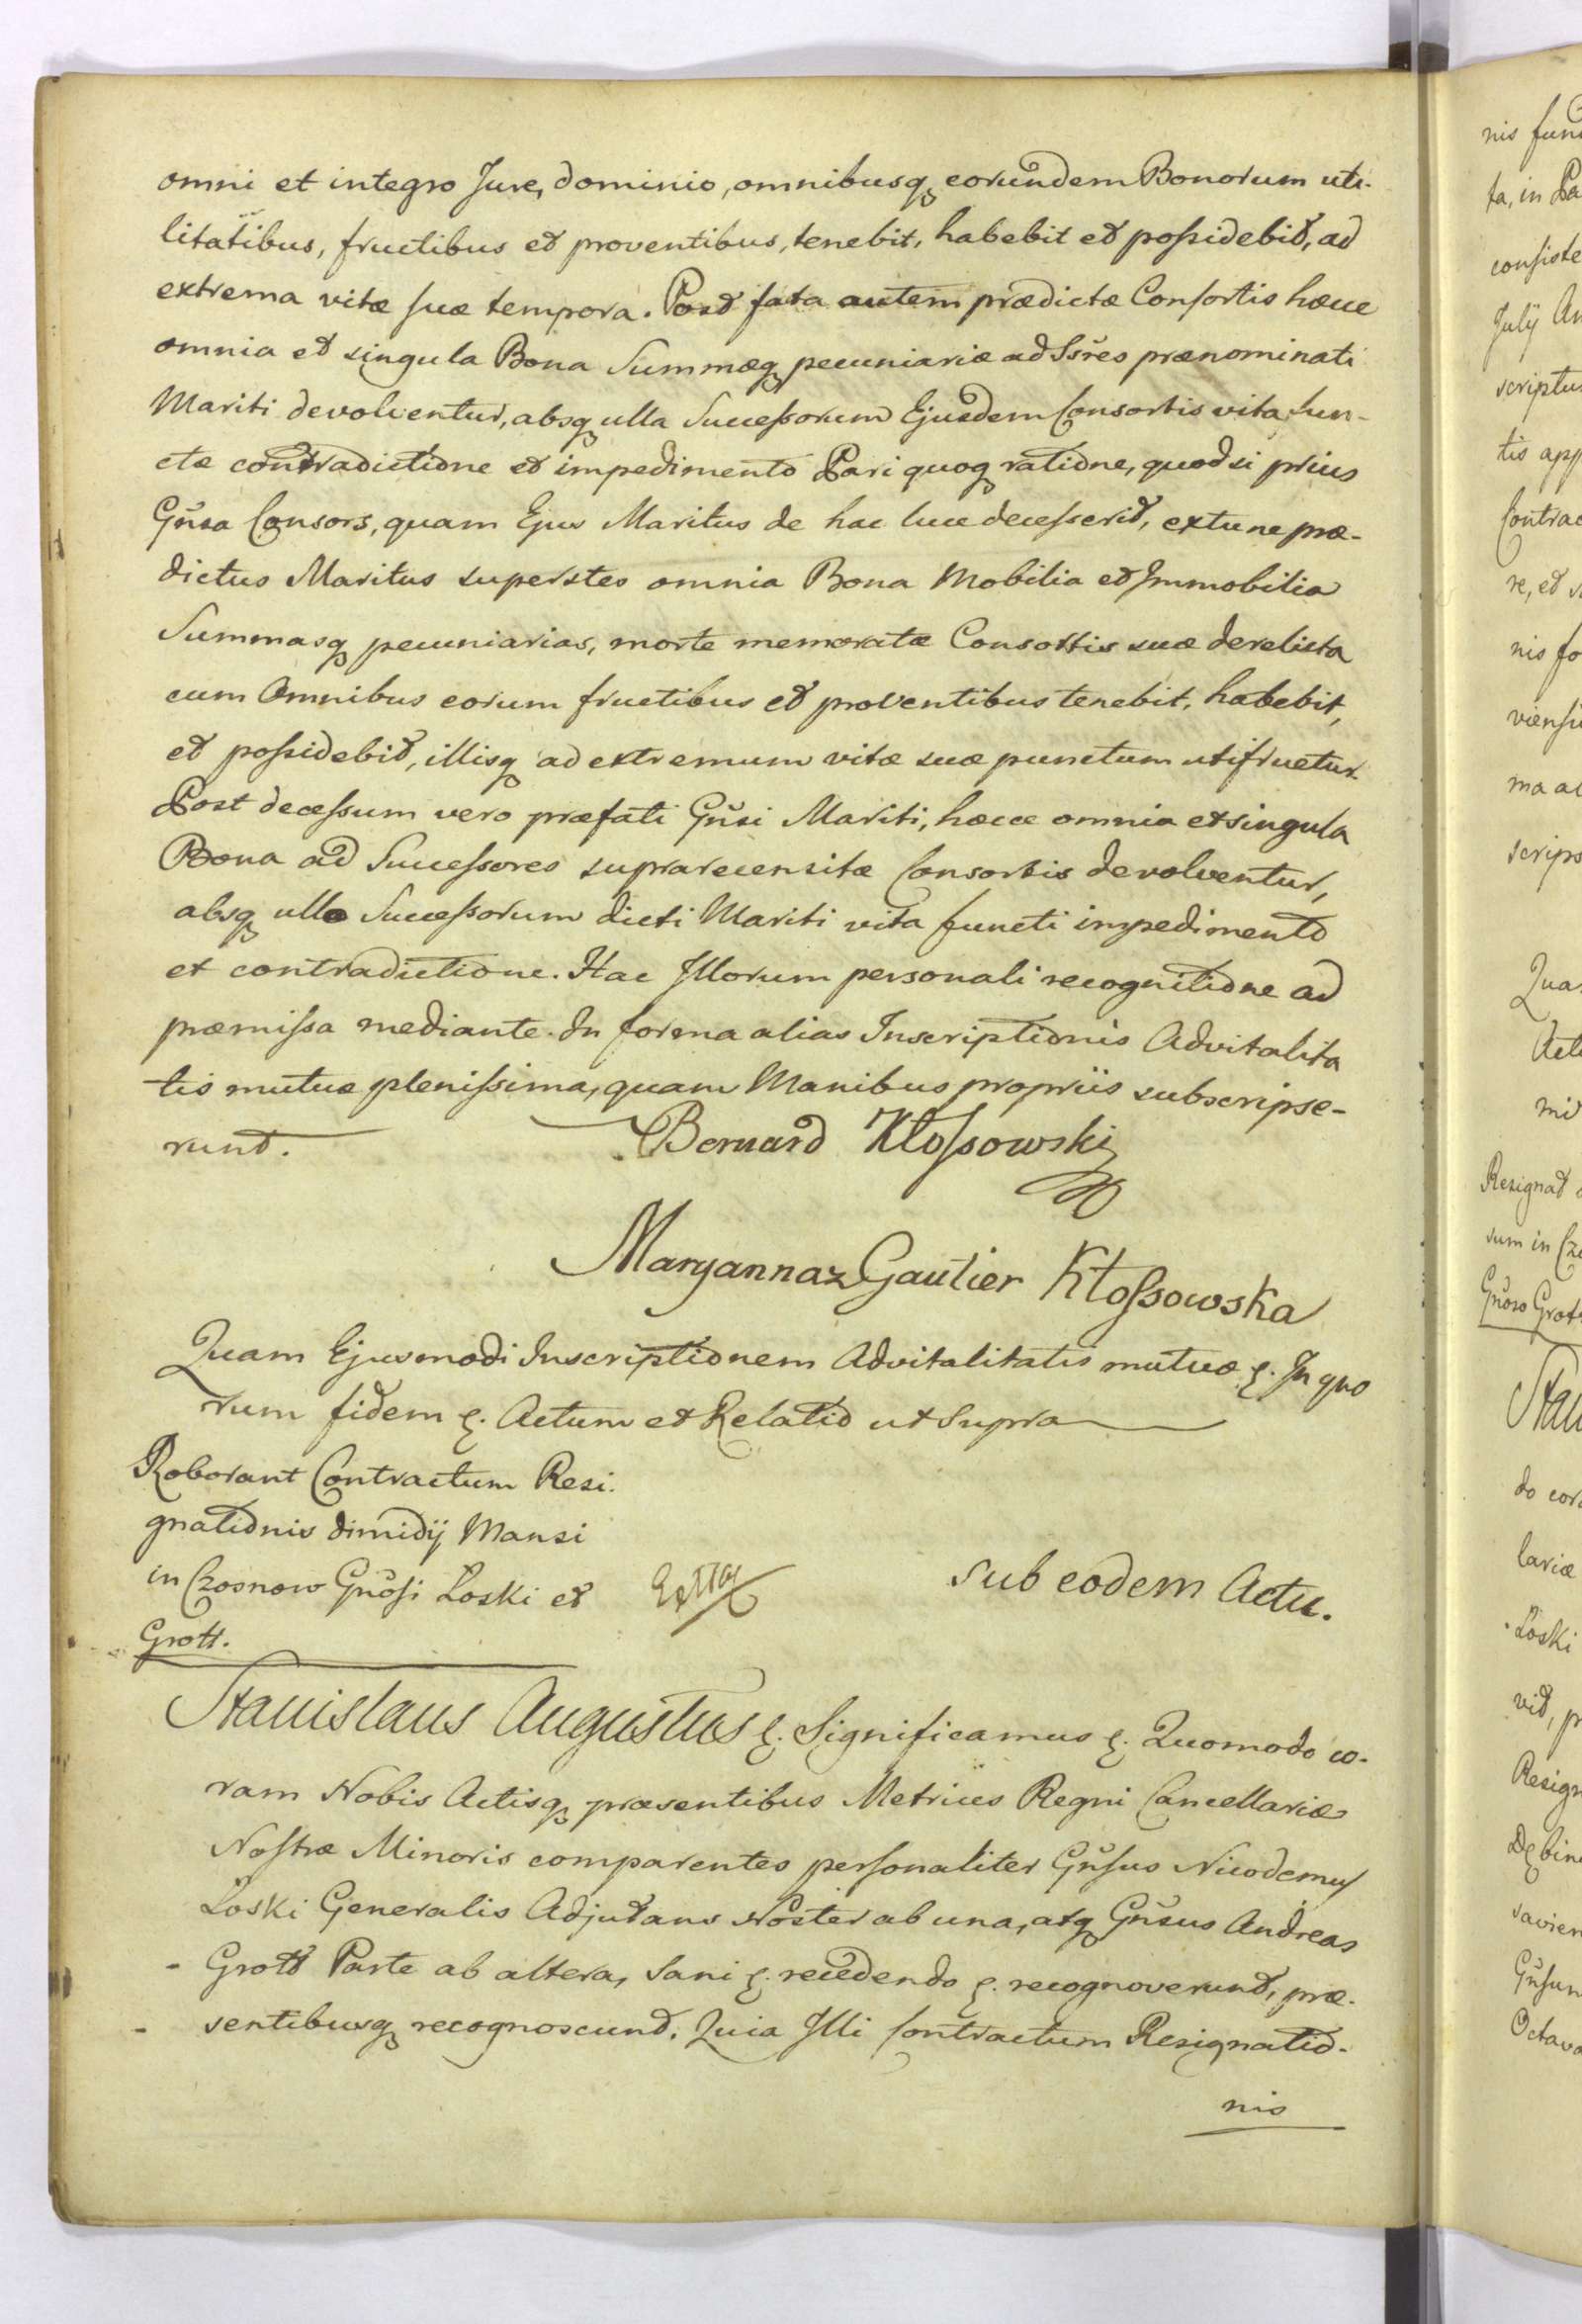 omni et integro Jure, dominio, omnibusq eorundem Bonorum uti-
litatibus, fructibus et proventibus, tenebit, habebit et possidebit, ad
extrema vitæ suæ tempora. Post fata autem prædictæ Consortis hæcce
omnia et singula Bona Summæq pecuniariæ ad Ssres prænominati
Mariti devolventur, absq ulla Successorum Ejusdem Consortis vita fun-
ctæ contradictione et impedimento Pari quoq ratione, quodsi prius
Gnsa Consors, quam Ejus Maritus de hac luce decesserit, extunc præ-
dictus Maritus superstes omnia Bona Mobilia et Immobilia
Summasq pecuniarias, morte memoratæ Consortis suæ derelicta
cum Omnibus eorum fructibus et proventibus tenebit, habebit,
et possidebit, illisq ad extremum vitæ suæ punctum utifruetur.
Post decessum vero præfati Gnsi Mariti, hæcce omnia et singula
Bona ad Successores suprarecensitæ Consortis devolventur,
absq ullo Successorum dicti Mariti vita functi impedimento
et contradictione. Hac Illorum personali recognitione ad
præmissa mediante. In forma alias Inscriptionis Advitalita
-tis mutuæ plenissima, quam Manibus propriis subscripse-
runt. Bernard Kłossowski
Maryanna z Gautier Kłossowska
Quam Ejusmodi Inscriptionem Advitalitatis mutuæ &. In quo
rum fidem &. Actum et Relatio ut Supra
Roborant Contractum Resi.
gnationis dimidij Mansi
in Czosnow Gnosi Łoski et
Grott.
Sub eodem Actu.
Stanislaus Augustus &. Significamus &. Quomodo co-
ram Nobis Actisq præsentibus Metrices Regni Cancellariæ
Nostræ Minoris comparentes personaliter Gnsus Nicodemus
Łoski Generalis Adjutans Noster ab una, atq Gnsus Andreas
- Grott Parte ab altera, Sani &. recedendo &. recognoverunt, præ-
- sentibusq recognoscunt. Quia Illi Contractum Resignatio-
nis